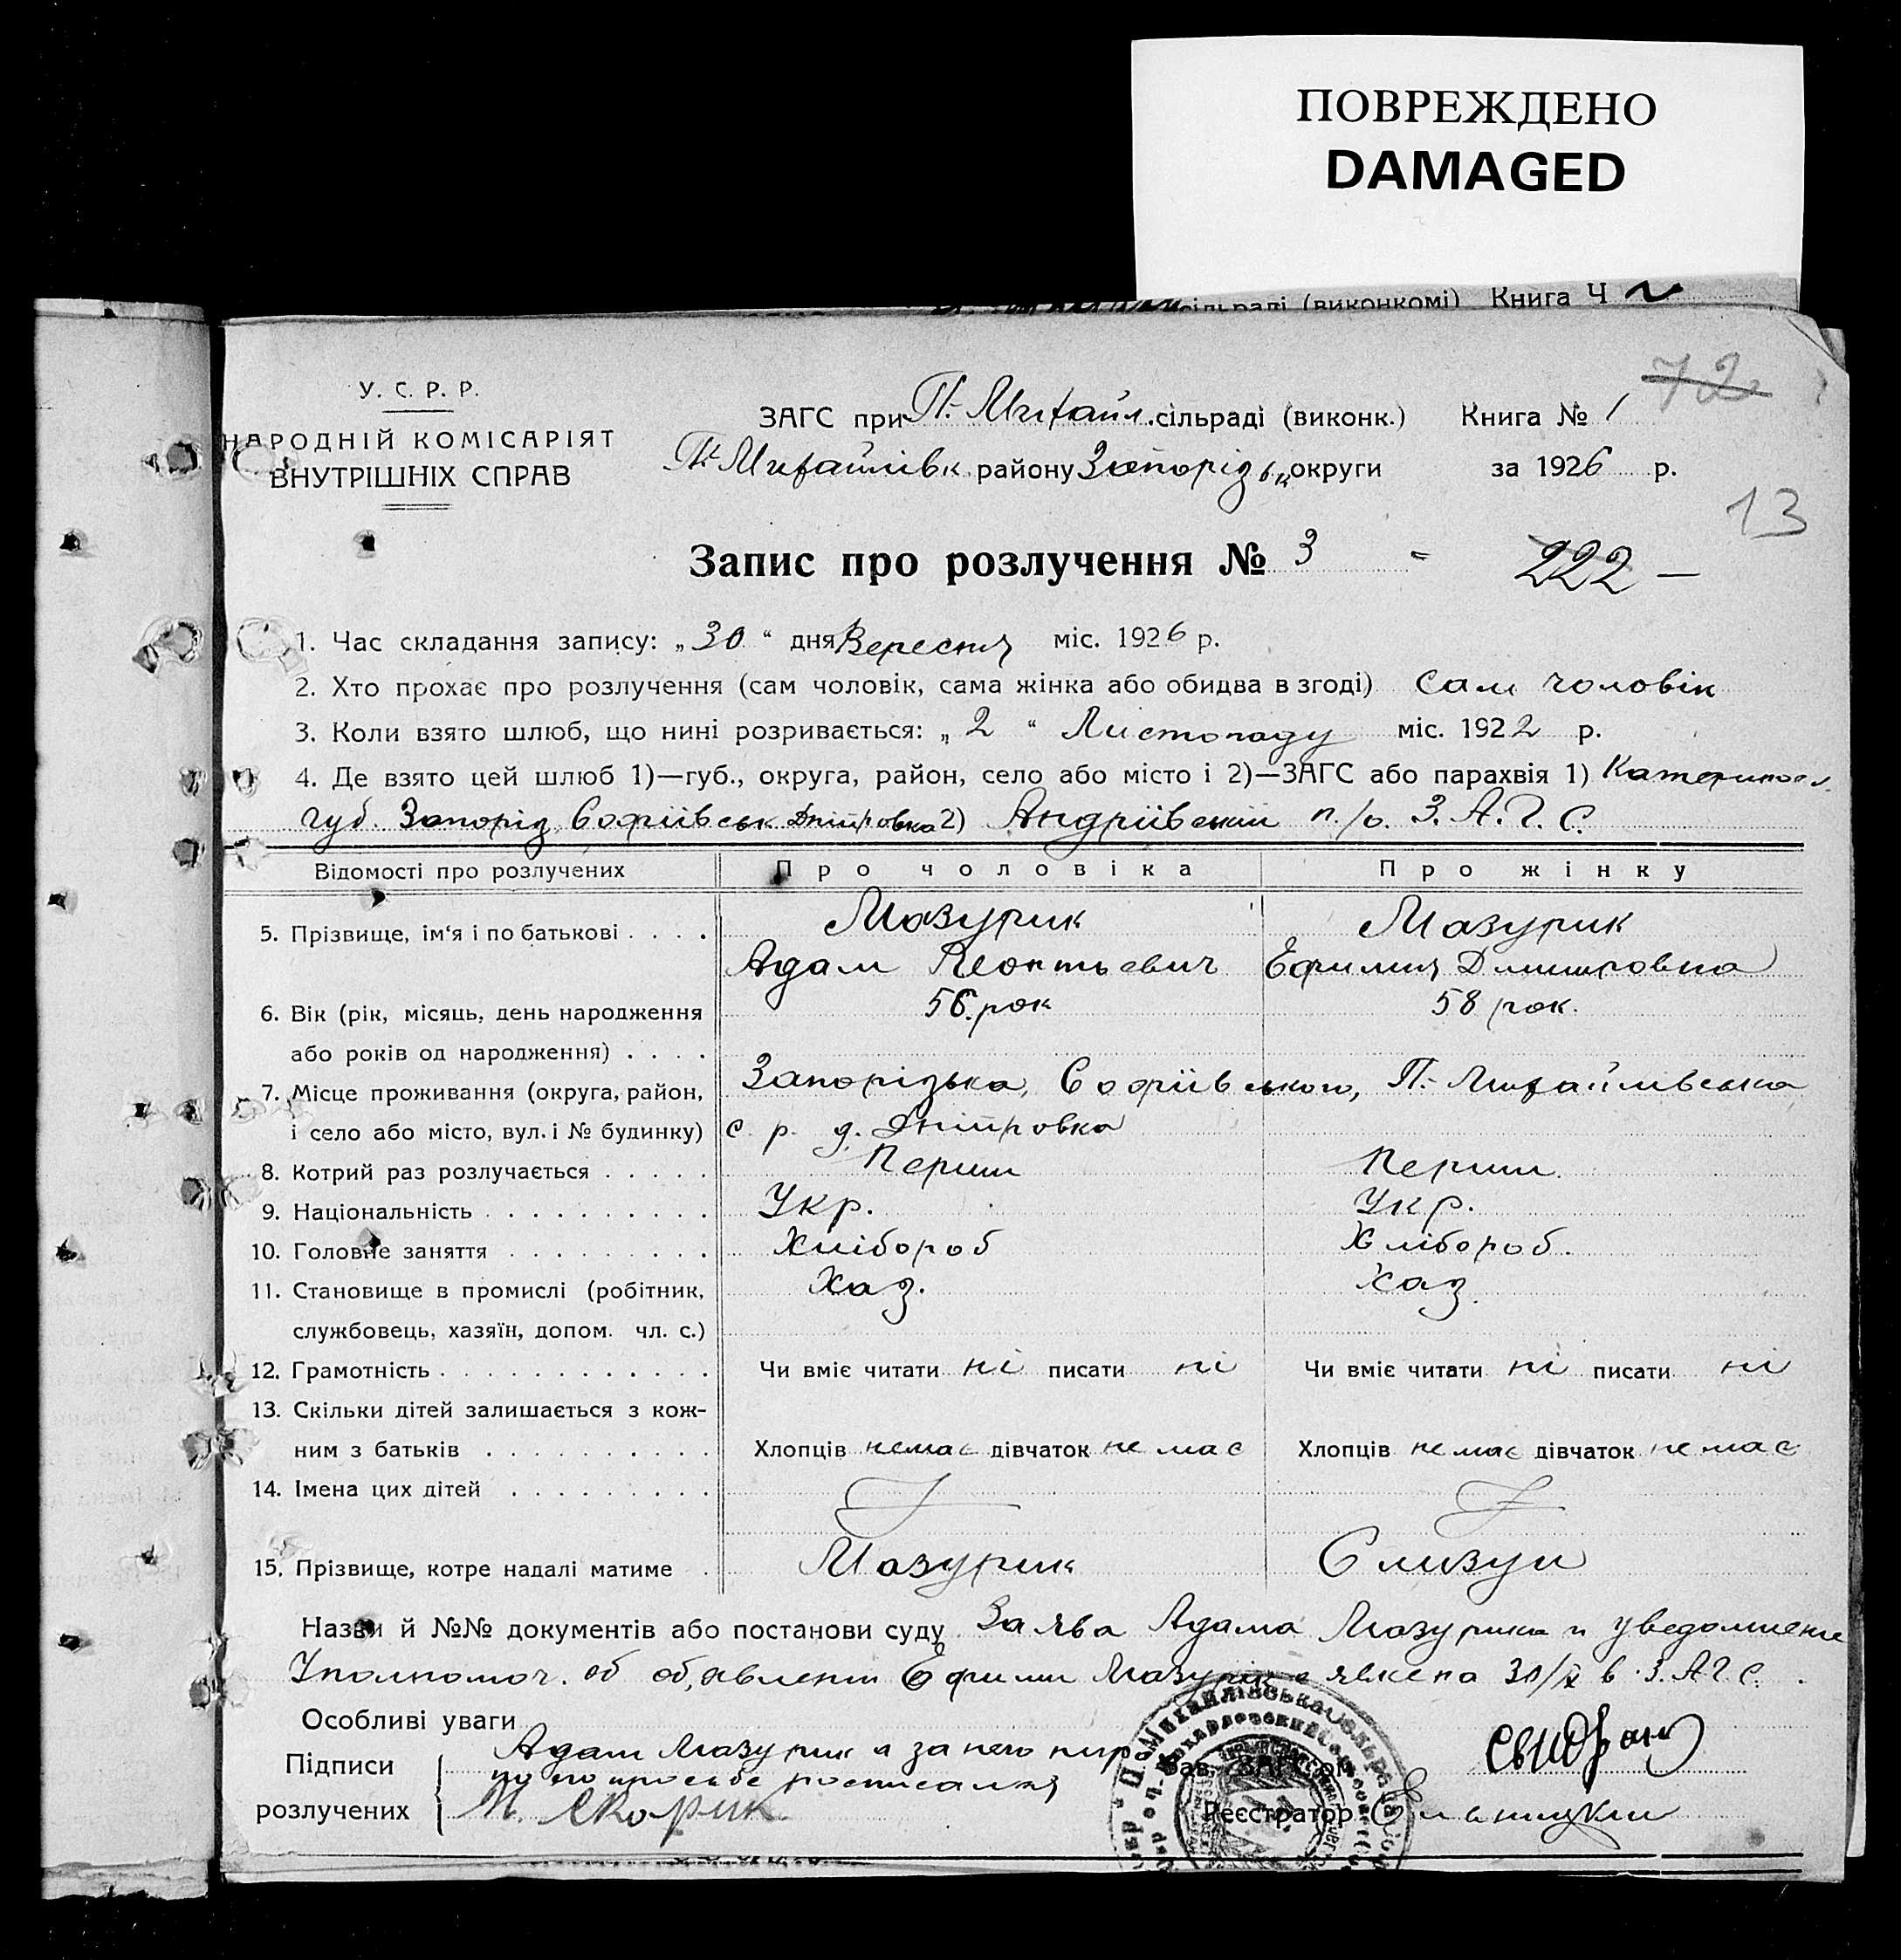 ПОВРЕЖДЕНО
DAMAGED
сільраді (виконкомі) Книга Ч
72
У. С. Р. Р.
НАРОДНІЙ КОМІСАРІЯТ
ВНУТРІШНІХ СПРАВ
ЗАГС при П.-Михайл. сільраді (виконк.) Книга № 1
П.-Михайлівк району Запорізьк округи за 1926 р.
13
Запис про розлучення № 3
222 —
1. Час складання запису: „30“ дня Вересня міс. 1926 р.
2. Хто прохає про розлучення (сам чоловік, сама жінка або обидва в згоді) Сам чоловік
3. Коли взято шлюб, що нині розривається: „2“ Листопаду міс. 1922 р.
4. Де взято цей шлюб 1)—губ., округа, район, село або місто і 2)—ЗАГС або парахвія 1) Катериносл.
губ. Запоріз, Софіївськ Дмітровка 2) Андріївський п./о. З. А. Г. С.
Відомості про розлучених Про чоловіка Про жінку
5. Прізвище, ім‘я і по батькові . . . . Мазурик Мазурик
Адам Леонтьевич Ефимия Дмитровна
6. Вік (рік, місяць, день народження 56 рок 58 рок.
або років од народження) . . . .
7. Місце проживання (округа, район, Запорізька, Софіївського, П.-Михайлівська
і село або місто, вул. і № будинку) с. р. д. Дмітровка
8. Котрий раз розлучається . . . . . Перший Перший
9. Національність . . . . . . . . . . Укр. Укр.
10. Головне заняття . . . . . . . . . Хлібороб Хлібороб.
11. Становище в промислі (робітник, Хаз. Хаз
службовець, хазяїн, допом. чл. с.)
12. Грамотність . . . . . . . . . . . . Чи вміє читати ні писати ні Чи вміє читати ні писати ні
13. Скільки дітей залишається з кож-
ним з батьків . . . . . . . . . . Хлопців немає дівчаток немає Хлопців немає дівчаток немає
14. Імена цих дітей . . . . . . . . .
15. Прізвище, котре надалі матиме . Мазурик Слизун
Назви й №№ документів або постанови суду Заява Адама Мазурика и уведомление
Уполномоч. об об,явлении Ефимии Мазурик явке на 30/IX в З. А. Г. С.
Особливі уваги
Підписи Адам Мазурик а за него
розлучених по его просьбе росписался
И. Скорик
Зав. ЗАГС‘ом
Реєстратор